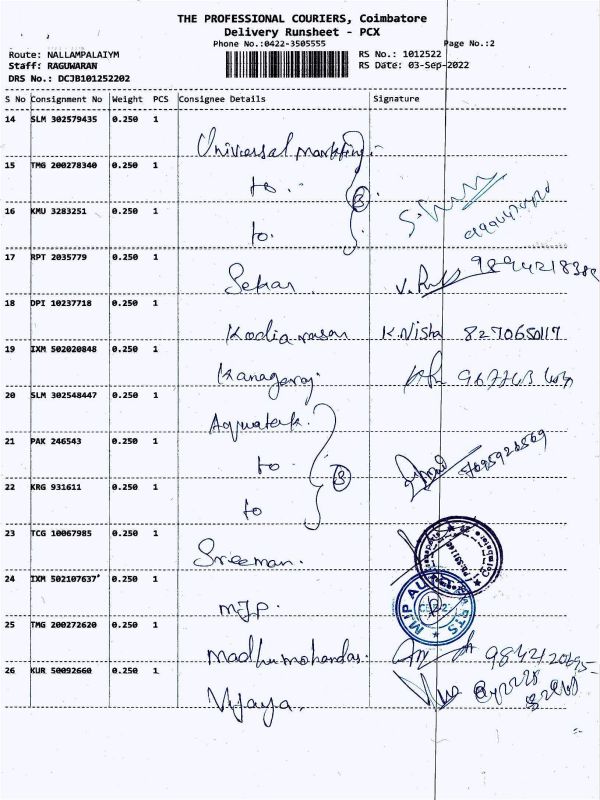 THE PROFESSIONAL COURIERS, Coimbatore
Delivery Runsheet - PCX
Phone No.:0422-3505555
Page No.:2
Route: NALLAMPALAIYM
RS No.: 1012522
Staff: RAGUWARAN
RS Date: 03-Sep-2022
DRS No.: DCJB101252202
S No Consignment No Weight PCS Consignee Details Signature
14 SLM 302579435 0.250 1 Universal marketing
15 TMG 200278340 0.250 1 to
16 KMU 3283251 0.250 1 to
3
17 RPT 2035779 0.250 1 Sekar
18 DPI 10237718 0.250 1 Kodiarasan K.Nisha 8270650117
19 IXM 502020848 0.250 1 Kanagaraj
20 SLM 302548447 0.250 1 Aquatek
21 PAK 246543 0.250 1 to
22 KRG 931611 0.250 1 to
3
23 TCG 10067985 0.250 1 Sreeman.
24 IXM 502107637 0.250 1 MJP.
25 TMG 200272620 0.250 1 Madhumohandas.
26 KUR 50092660 0.250 1 Vijaya.